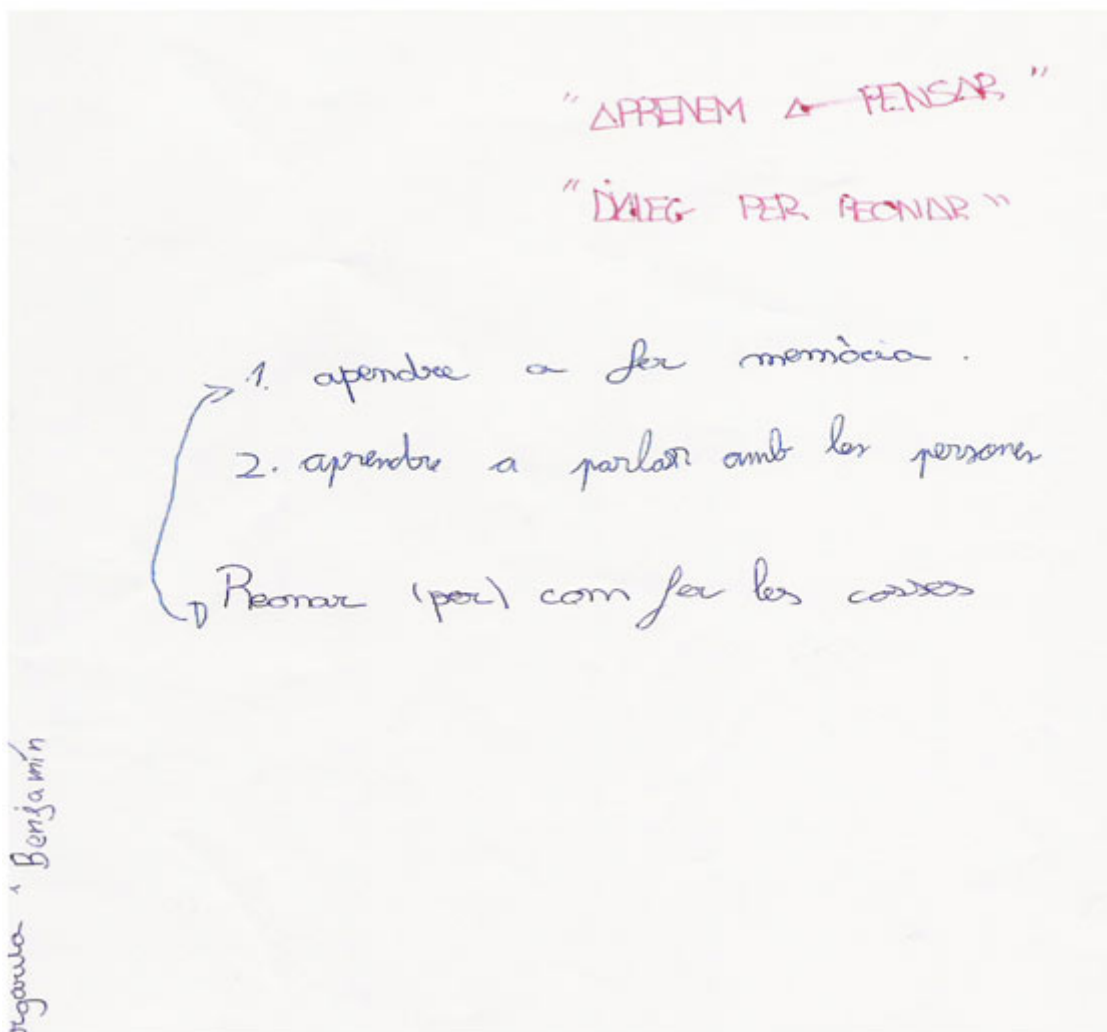 "APRENEM A PENSAR"
"DIÀLEG PER REONAR"
1. apendre a fer memòria.
2. aprendre a parlar amb les persones
Reonar (per) com fer les cosses
i Benjamín